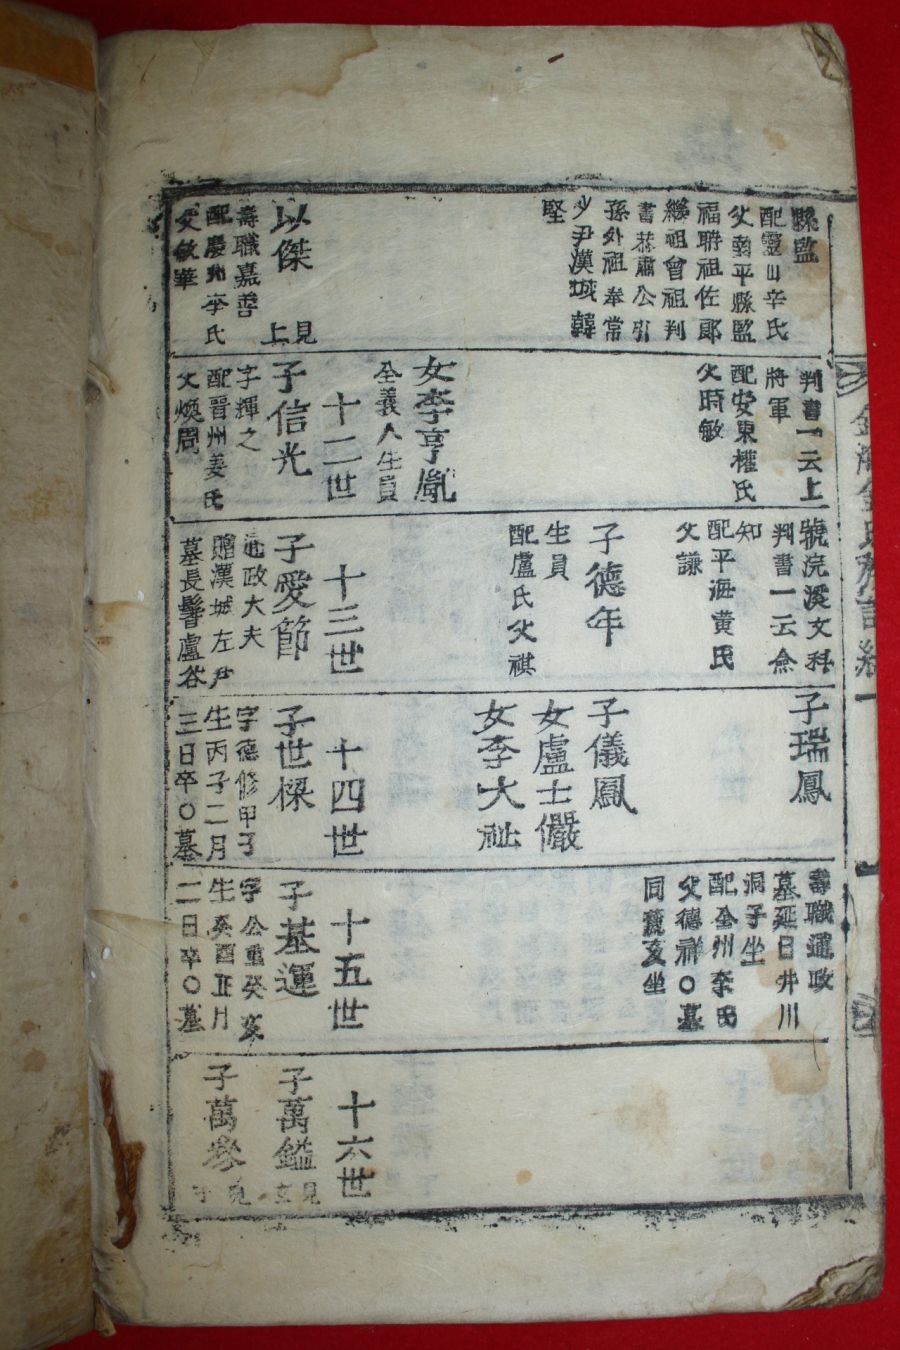 縣監
配靈山辛氏
父昌平縣監
福聃祖佐郞
繼祖曾祖判
書恭肅公引
孫外祖奉常
少尹漢城韓
堅
以傑
見上
壽職嘉善
配慶州李氏
父敏華
判書一云上
將軍
配安東權氏
父時敏
女李亨胤
全義人生員
十二世
子信光
字輝之
配晋州姜氏
父煥周
號浣溪文科
判書一云僉
知
配平海黃氏
父謙
子德年
生員
配盧氏父祺
十三世
子愛節
通政大夫
贈漢城左尹
墓長髻盧谷
子瑞鳳
子儀鳳
女盧士儼
女李大祉
十四世
子世樑
字德修甲子
生丙子二月
三日卒○墓
壽職通政
墓延日井川
洞子坐
配全州李氏
父德祥○墓
同麓亥坐
十五世
子基運
字公重癸亥
生癸酉正月
二日卒○墓
十六世
子萬鎰
子萬參
金海金氏族譜 一